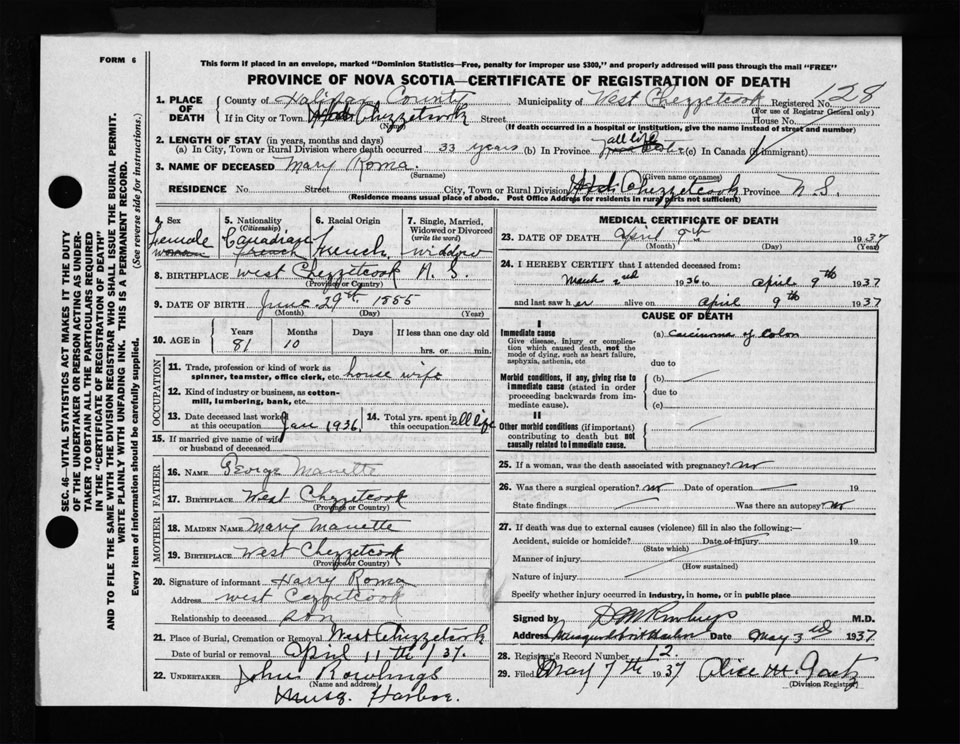 FORM 6
This form if placed in an envelope, marked "Dominion Statistics—Free, penalty for improper use $300," and properly addressed will pass through the mail "FREE"
PROVINCE OF NOVA SCOTIA—CERTIFICATE OF REGISTRATION OF DEATH
1. PLACE OF DEATH County of Halifax County Municipality of West Chezzetcook Registered No. 128
(For use of Registrar General only)
If in City or Town Chezzetcook Street House No.
(Name) (If death occurred in a hospital or institution, give the name instead of street and number)
2. LENGTH OF STAY (in years, months and days)
(a) In City, Town or Rural Division where death occurred 33 years (b) In Province all life (c) In Canada (if immigrant)
3. NAME OF DECEASED Mary Roma
(Surname) (Given name or names)
RESIDENCE No Street City, Town or Rural Division Chezzetcook Province N S.
(Residence means usual place of abode. Post Office Address for residents in rural parts not sufficient)
4. Sex female woman
5. Nationality (Citizenship) Canadian french
6. Racial Origin french
7. Single, Married, Widowed or Divorced (write the word) widow
8. BIRTHPLACE West Chezzetcook N. S.
(Province or Country)
9. DATE OF BIRTH June 29th 1855
(Month) (Day) (Year)
10. AGE in Years 81 Months 10 Days If less than one day old hrs. or min.
OCCUPATION
11. Trade, profession or kind of work as spinner, teamster, office clerk, etc. house wife
12. Kind of industry or business, as cotton-mill, lumbering, bank, etc.
13. Date deceased last worked at this occupation Jan 1936
14. Total yrs. spent in this occupation all life
15. If married give name of wife or husband of deceased
FATHER
16. NAME George Manette
17. BIRTHPLACE West Chezzetcook
MOTHER
18. MAIDEN NAME Mary Manette
19. BIRTHPLACE West Chezzetcook
(Province or Country)
20. Signature of informant Harry Roma
Address West Cezzetcook
Relationship to deceased son
21. Place of Burial, Cremation or Removal West Chezzetcook
Date of burial or removal April 11th / 37.
22. UNDERTAKER John Rowlings
(Name and address)
Musq. Harbor.
MEDICAL CERTIFICATE OF DEATH
23. DATE OF DEATH April 9th 1937
(Month) (Day) (Year)
24. I HEREBY CERTIFY that I attended deceased from:
March 2nd 1936 to April 9th 1937
and last saw her alive on April 9th 1937
CAUSE OF DEATH
I
Immediate cause
Give disease, injury or complication which caused death, not the mode of dying, such as heart failure, asphyxia, asthenia, etc
(a) Carcinoma of Colon
due to
Morbid conditions, if any, giving rise to immediate cause (stated in order proceeding backwards from immediate cause).
(b)
due to
(c)
II
Other morbid conditions (if important) contributing to death but not causally related to immediate cause.
25. If a woman, was the death associated with pregnancy? no
26. Was there a surgical operation? no Date of operation 19
State findings Was there an autopsy? no
27. If death was due to external causes (violence) fill in also the following:—
Accident, suicide or homicide? Date of injury 19
(State which)
Manner of injury
(How sustained)
Nature of injury
Specify whether injury occurred in industry, in home, or in public place
Signed by M.D.
Address Musquodoboit Harbor Date May 3rd 1937
28. Registrar's Record Number 12.
29. Filed May 7th 1937 Alice
(Division Registrar)
SEC. 46—VITAL STATISTICS ACT MAKES IT THE DUTY
OF THE UNDERTAKER OR PERSON ACTING AS UNDER-
TAKER TO OBTAIN ALL THE PARTICULARS REQUIRED
IN THE "CERTIFICATE OF REGISTRATION OF DEATH"
AND TO FILE THE SAME WITH THE DIVISION REGISTRAR WHO SHALL ISSUE THE BURIAL PERMIT.
WRITE PLAINLY WITH UNFADING INK. THIS IS A PERMANENT RECORD.
Every item of information should be carefully supplied. (See reverse side for instructions.)